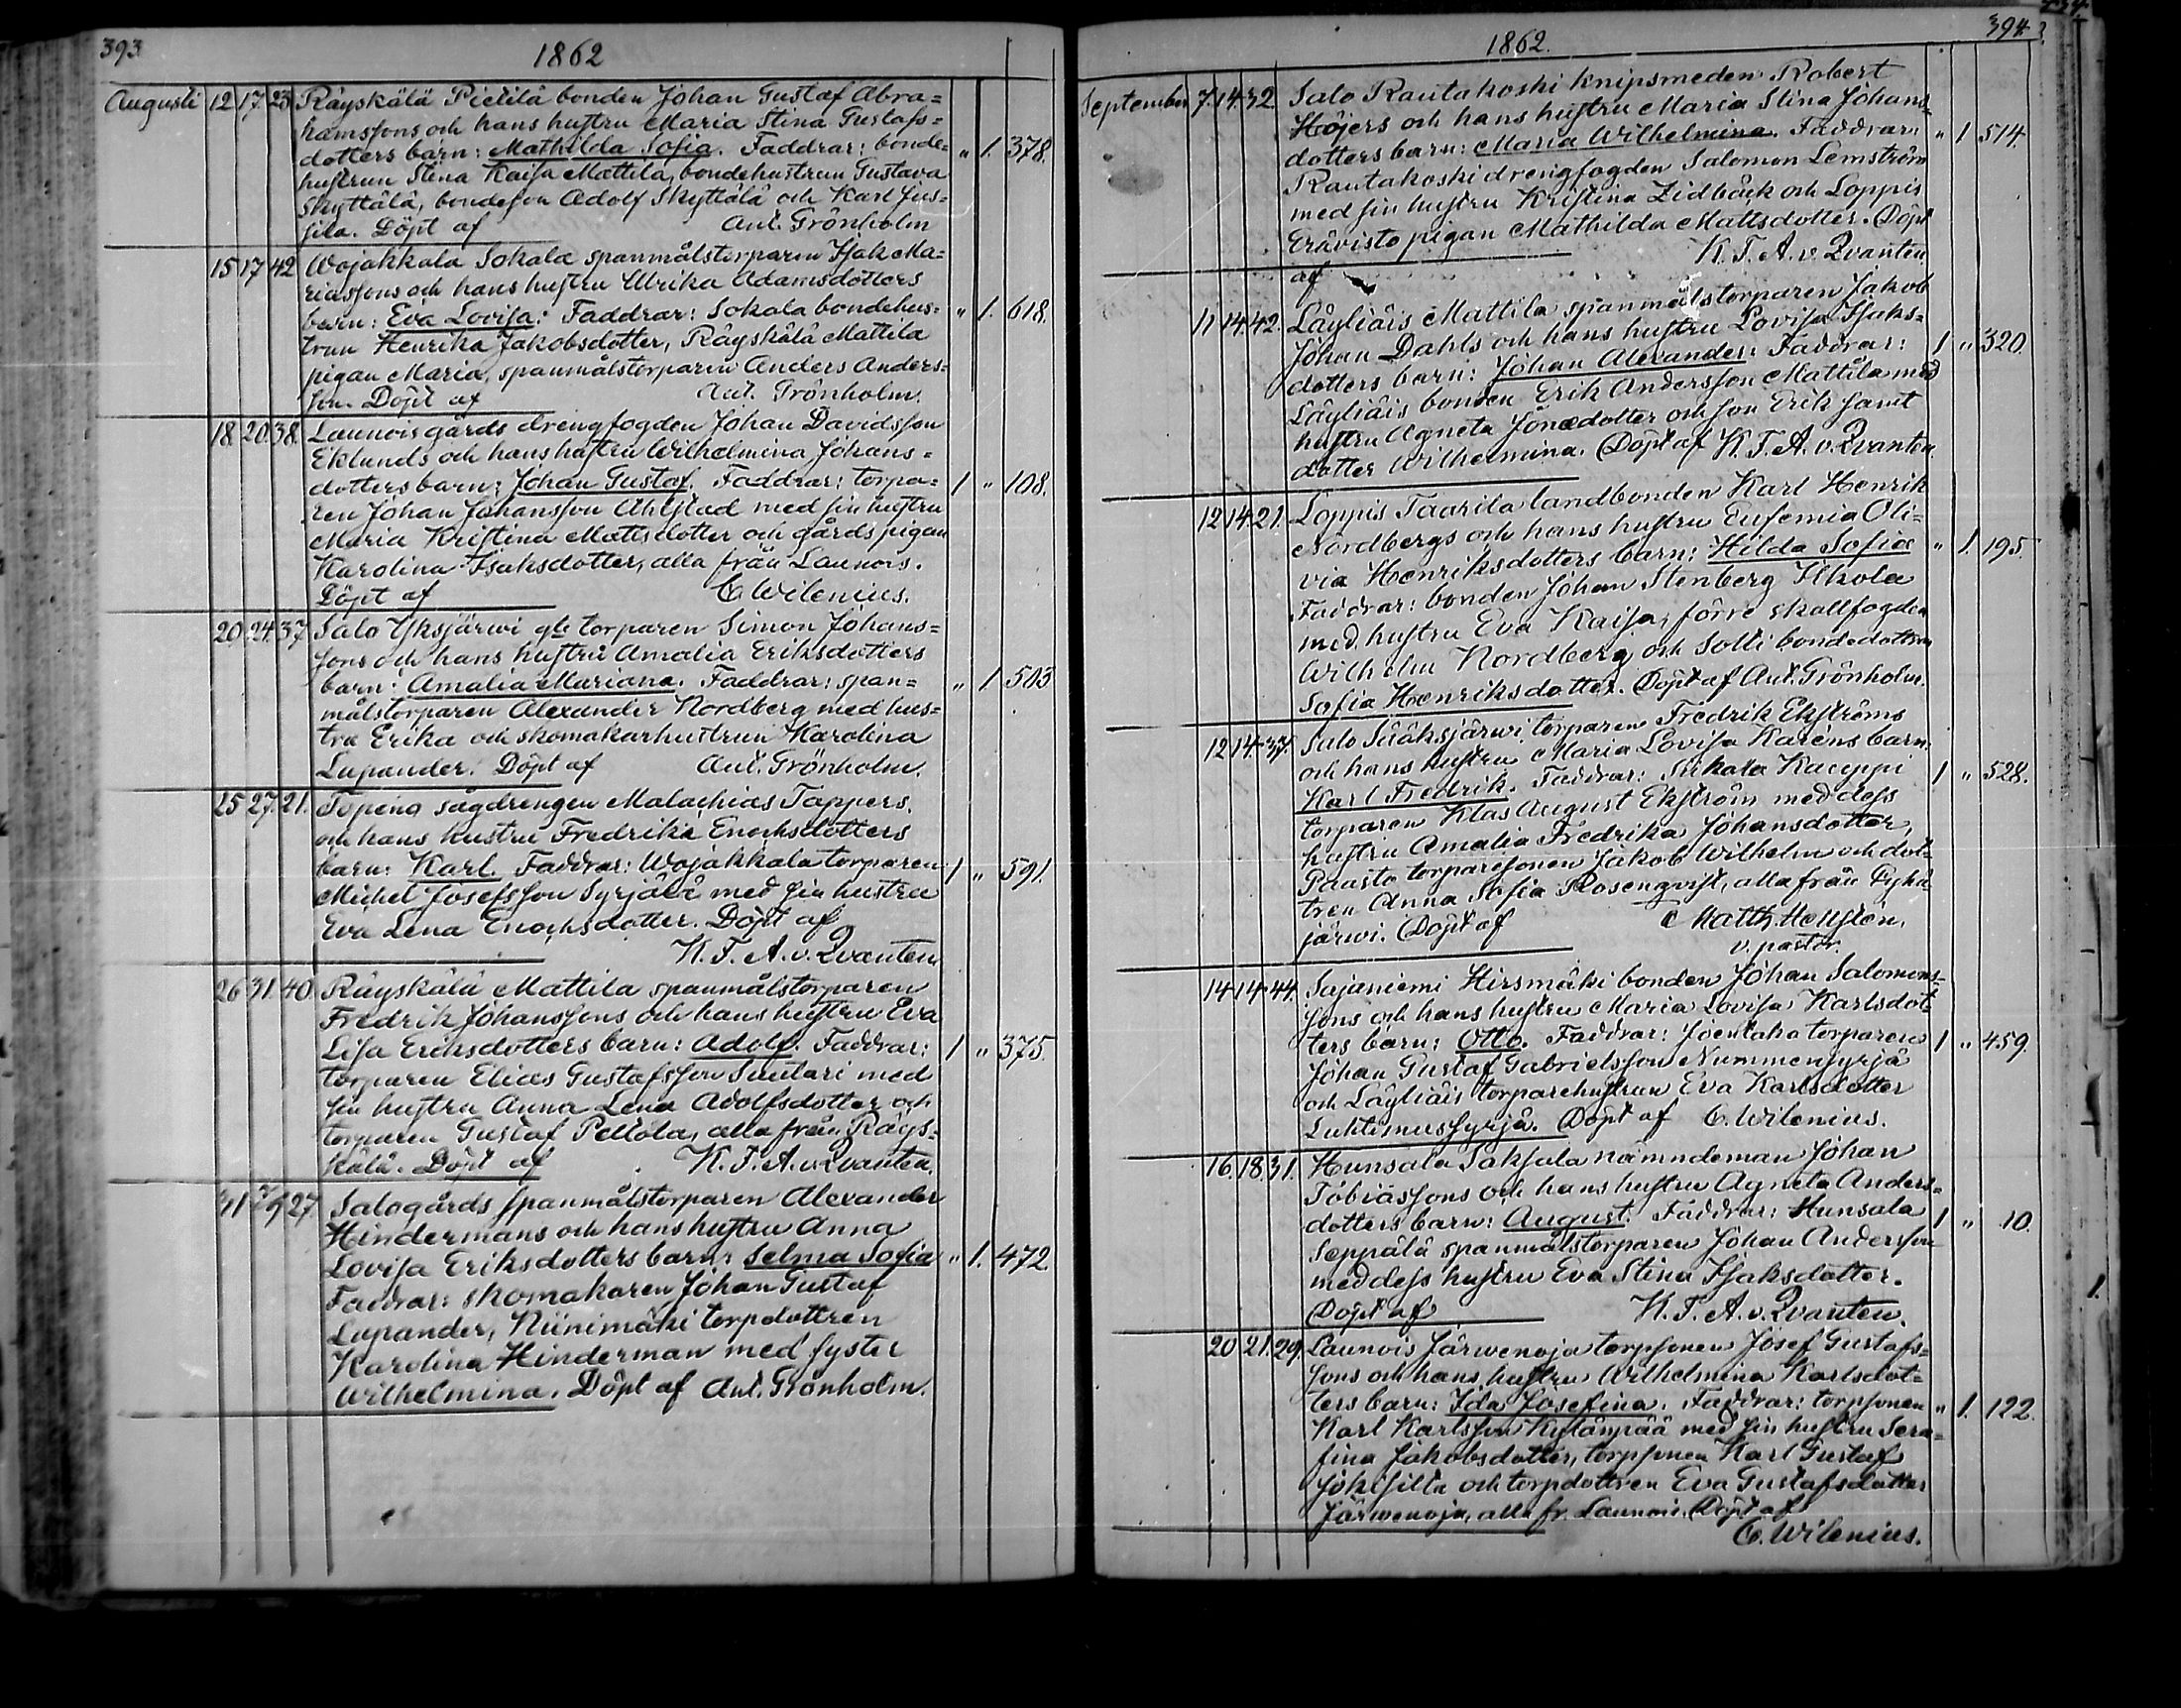 393
1862
Augusti 12 17. 23 Räyskälä Pietilä bonden Johan Gustaf Abra=
hamssons och hans hustru Maria Stina Gustafs=
dotters barn: Mathilda Sofia. Faddrar: bonde= " 1. 378.
hustrun Stina Kaisa Mattila, bondehustrun Gustava
Skyttälä, bondeson Adolf Skyttälä och Karl Jus=
sila. Döpt af Ant. Grönholm
15 17 42 Wojakkala Sokala spanmålstorparen Isak Ma=
riassons och hans hustru Ulrika Adamsdotters
barn: Eva Lovisa. Faddrar: Sokala bondehus= " 1. 618.
trun Henrika Jakobsdotter, Räyskälä Mattila
pigan Maria, spanmålstorparen Anders Anders=
son. Döpt af Ant. Grönholm.
18. 20. 38. Launois gårds drengfogden Johan Davidsson
Eklunds och hans hustru Wilhelmina Johans=
dotters barn: Johan Gustaf. Faddrar: torpa= 1 " 108.
ren Johan Johansson Ahlstad med sin hustru
Maria Kristina Mattsdotter och gårds pigan
Karolina Isaksdotter, alla från Launois.
Döpt af C. Wilenius.
20. 24. 37 Salo Yksjärwi gb torparen Simon Johans=
sons och hans hustru Amalia Eriksdotters
barn: Amalia Mariana. Faddrar: span= " 1 503
målstorparen Alexander Nordberg med hus=
tru Erika och skomakarhustrun Karolina
Lupander. Döpt af Ant. Grönholm.
25 27. 21. Topeno sågdrengen Malachias Tappers.
och hans hustru Fredrika Enochsdotters
barn: Karl. Faddrar: Wojakkala torparen 1 " 591.
Michel Josefsson Syrjälä med sin hustru
Eva Lena Enochsdotter. Döpt af
K. F. A. v. Qvanten
26 31. 40. Räyskälä Mattila spanmålstorparen
Fredrik Johanssons och hans hustru Eva
Lisa Eriksdotters barn: Adolf. Faddrar: 1 " 375.
torparen Elias Gustafsson Suntari med
sin hustru Anna Lena Adolfsdotter och
torparen Gustaf Pellola, alla från Räys=
kälä. Döpt af K. F. A. v. Qvanten.
31 7/9 27 Salogårds spanmålstorparen Alexander
Hindermans och hans hustru Anna
Lovisa Eriksdotters barn: Selma Sofia " 1. 472.
Faddrar: skomakaren Johan Gustaf
Lupander, Niinimäki torpdottren
Karolina Hinderman med syster
Wilhelmina. Döpt af Ant. Grönholm.
394
1862.
September 7. 14. 32. Salo Rautakoski knipsmeden Robert
Höjers och hans hustru Maria Stina Johans=
dotters barn: Maria Wilhelmina. Faddrar: " 1 514.
Rautakoski drengfogden Salomon Lemström
med sin hustru Kristina Lidbäck och Loppis
Erävisto pigan Mathilda Mattsdotter. Döpt
af K. F. A. v. Qvanten
11 14. 42. Läyliäis Mattila spanmålstorparen Jakob
Johan Dahls och hans hustru Lovisa Isaks=
dotters barn: Johan Alexander. Faddrar: 1 " 320.
Läyliäis bonden Erik Andersson Mattila med
hustru Agneta Jonædotter och son Erik samt
dotter Wilhelmina. Döpt af K. F. A. v. Qvanten
12 14. 21. Loppis Taarila landbonden Karl Henrik
Nordbergs och hans hustru Eufemia Oli=
via Henriksdotters barn: Hilda Sofia " 1. 195.
Faddrar: bonden Johan Stenberg Ilkola
med hustru Eva Kaisa, förre skallfogden
Wilhelm Nordberg och Solli bondedottren
Sofia Henriksdotter. Döpt af Ant. Grönholm.
12 14. 37. Salo Sääksjärwi torparen Fredrik Ekströms
och hans hustru Maria Lovisa Karens barn
Karl Fredrik. Faddrar: Kauppi 1 " 528.
torparen Klas August Ekström med dess
hustru Amalia Fredrika Johansdotter,
Paasto torparesonen Jakob Wilhelm och dot=
tren Anna Sofia Rosenqvist, alla från Pyhä
järwi. Döpt af Matth. Hellsten,
v. pastor.
14 14 44. Sajaniemi Hirsmäki bonden Johan Salomons=
sons och hans hustru Maria Lovisa Karlsdot=
ters barn: Otto. Faddrar: Joentaka torparen 1 " 459.
Johan Gustaf Gabrielsson Nummensyrjä
och Läyliäis torparehustrun Eva Karlsdotter
Luhtimussyrjä. Döpt af C. Wilenius.
16. 18. 31. Hunsala Saksala nämndeman Johan
Tobiassons och hans hustru Agneta Anders=
dotters barn: August. Faddrar: Hunsala 1 " 10.
Seppälä spanmålstorparen Johan Andersson
med dess hustru Eva Stina Isaksdotter.
Döpt af K. F. A. v. Qvanten.
20 21. 29. Launois Järwenoja torpsonen Josef Gustafs=
sons och hans hustru Wilhelmina Karlsdot=
ters barn: Ida Josefina. Faddrar: torpsonen " 1. 122.
Karl Karlsson Kylänpää med sin hustru Sera=
fina Jakobsdotter, torpsonen Karl Gustaf
Jokisilta och torpdottren Eva Gustafsdotter
Järwenoja, alla fr. Launois. Döpt af
C. Wilenius.